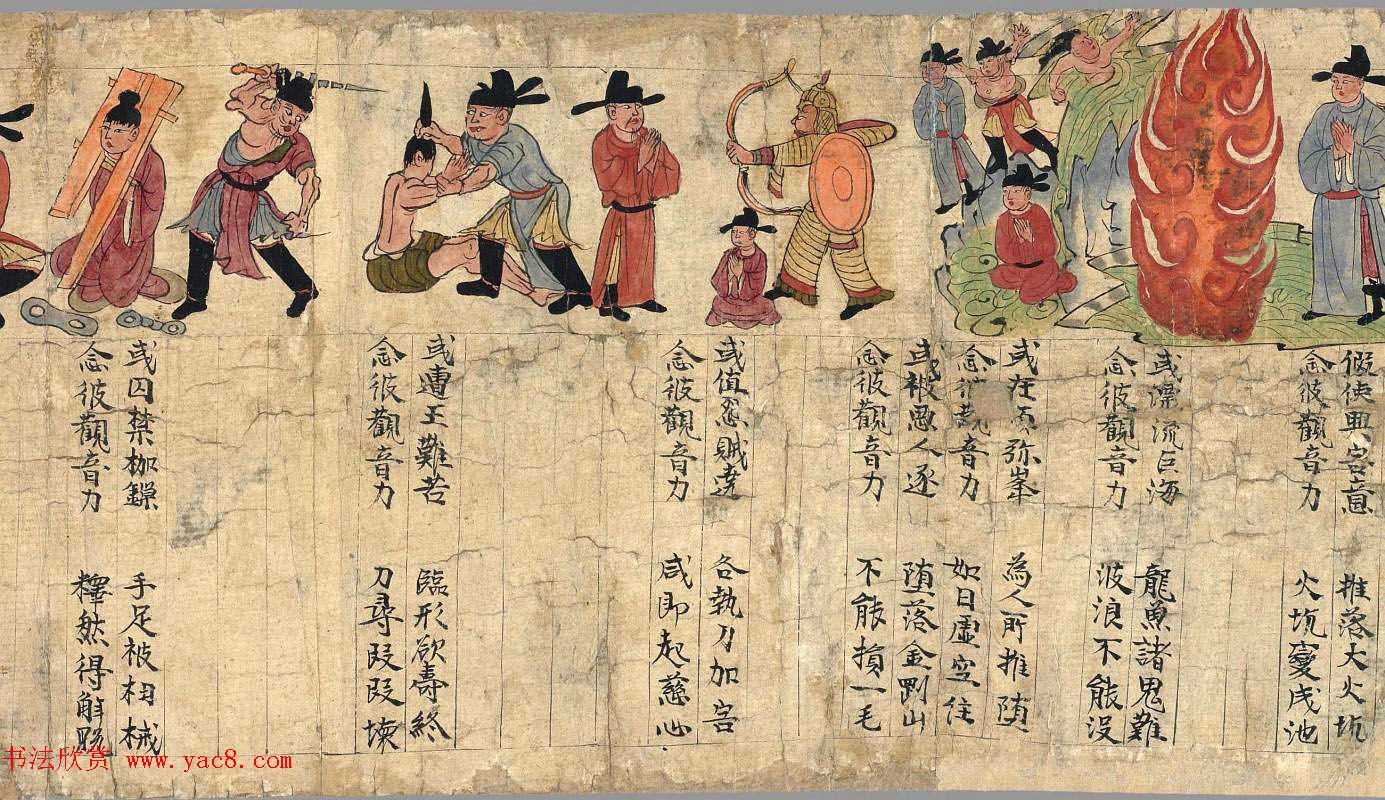 假使興害意 推落大火坑
念彼觀音力 火坑變成池
或漂流巨海 龍魚諸鬼難
念彼觀音力 波浪不能没
或在弥峯 為人所推堕
念彼觀音力 如日虚空住
或被惡人逐 堕落金剛山
念彼觀音力 不能損一毛
或值怨賊遶 各執刀加害
念彼觀音力 咸即起慈心
或遭王難苦 臨形欲壽終
念彼觀音力 刀尋段段壞
或囚禁枷鏁 手足被杻械
念彼觀音力 釋然得解脱
书法欣赏 www.yac8.com